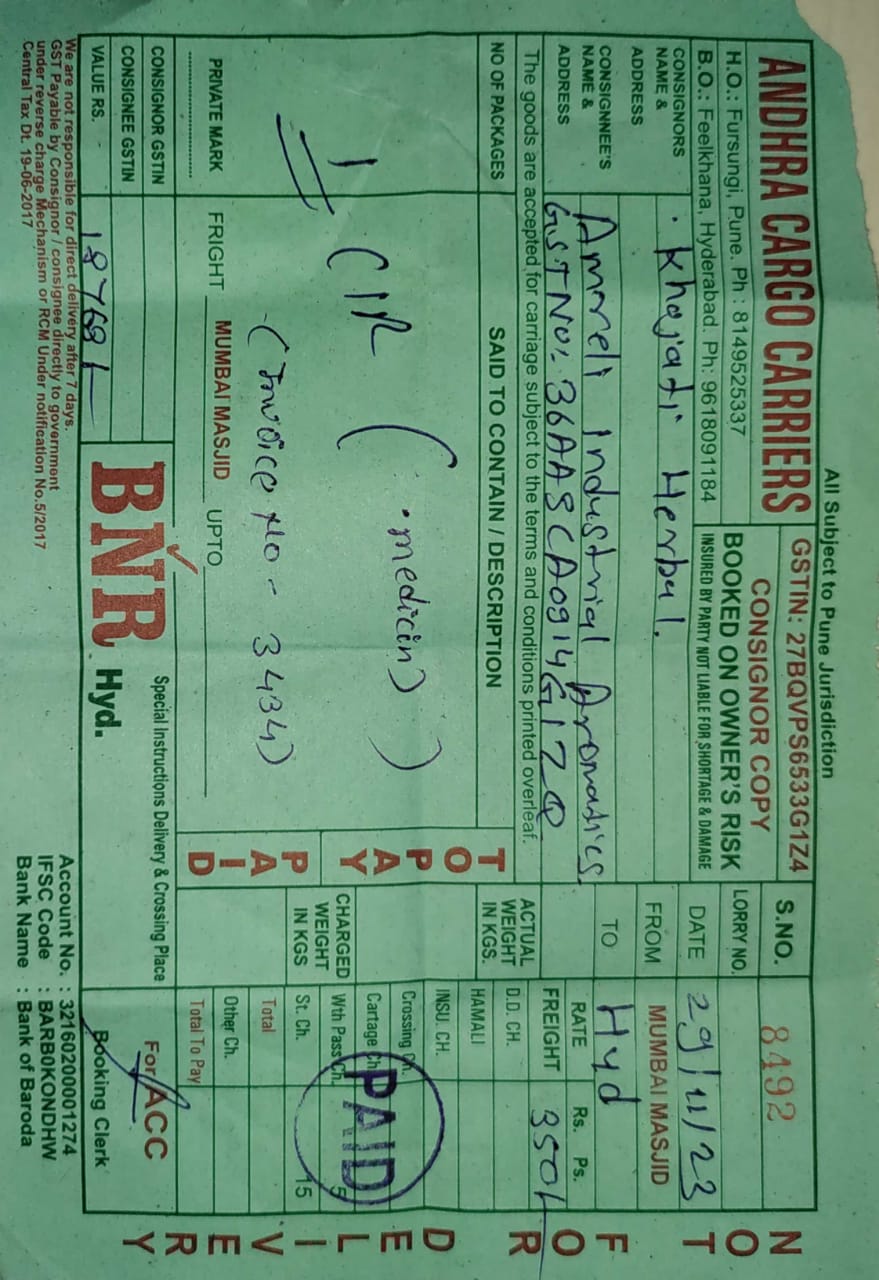 All Subject to Pune Jurisdiction
ANDHRA CARGO CARRIERS
H.O.: Fursungi, Pune. Ph : 8149525337
B.O.: Feelkhana, Hyderabad. Ph: 9618091184
GSTIN: 27BQVPS6533G1Z4
CONSIGNOR COPY
BOOKED ON OWNER'S RISK
INSURED BY PARTY NOT LIABLE FOR SHORTAGE & DAMAGE
S.NO. 8492
LORRY NO.
DATE 29/11/23
FROM MUMBAI MASJID
TO Hyd
CONSIGNORS NAME & ADDRESS
Khojati Herbal.
CONSIGNNEE'S NAME & ADDRESS
Amoreli Industrial Aromatics
GSTNO: 36AASCA0914G1ZQ
The goods are accepted for carriage subject to the terms and conditions printed overleaf.
NO OF PACKAGES
SAID TO CONTAIN / DESCRIPTION
1 (medicin)
(Invoice No - 3434)
PRIVATE MARK
FRIGHT MUMBAI MASJID UPTO
TO PAY
PAID
ACTUAL WEIGHT IN KGS.
CHARGED WEIGHT IN KGS
RATE Rs. Ps.
FREIGHT 350/-
D.D. CH.
HAMALI
INSU. CH.
Crossing Ch.
Cartage Ch.
Wth Pass Ch. 5
St. Ch. 15
Total
Other Ch.
Total To Pay
PAID
CONSIGNOR GSTIN
CONSIGNEE GSTIN
VALUE RS. 18768/-
BNR Hyd.
Special Instructions Delivery & Crossing Place
For ACC
Booking Clerk
We are not responsible for direct delivery after 7 days.
GST Payable by Consignor / consignee directly to government
under reverse charge Mechanism or RCM Under notification No.5/2017
Central Tax Dt. 19-06-2017
Account No. : 32160200001274
IFSC Code : BARB0KONDHW
Bank Name : Bank of Baroda
NOT FOR DELIVERY